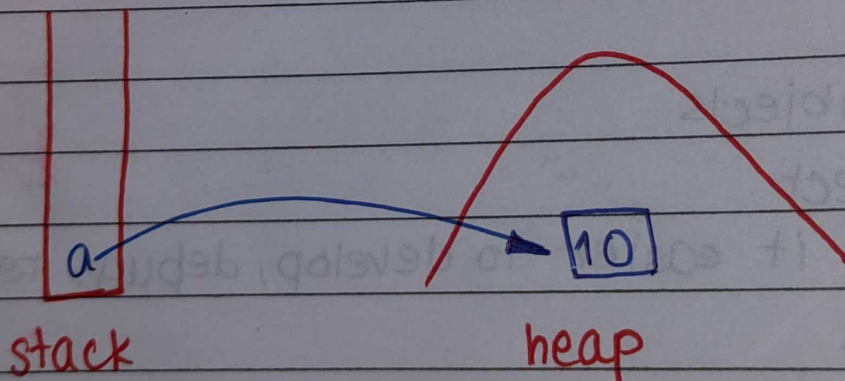 a 10
stack heap